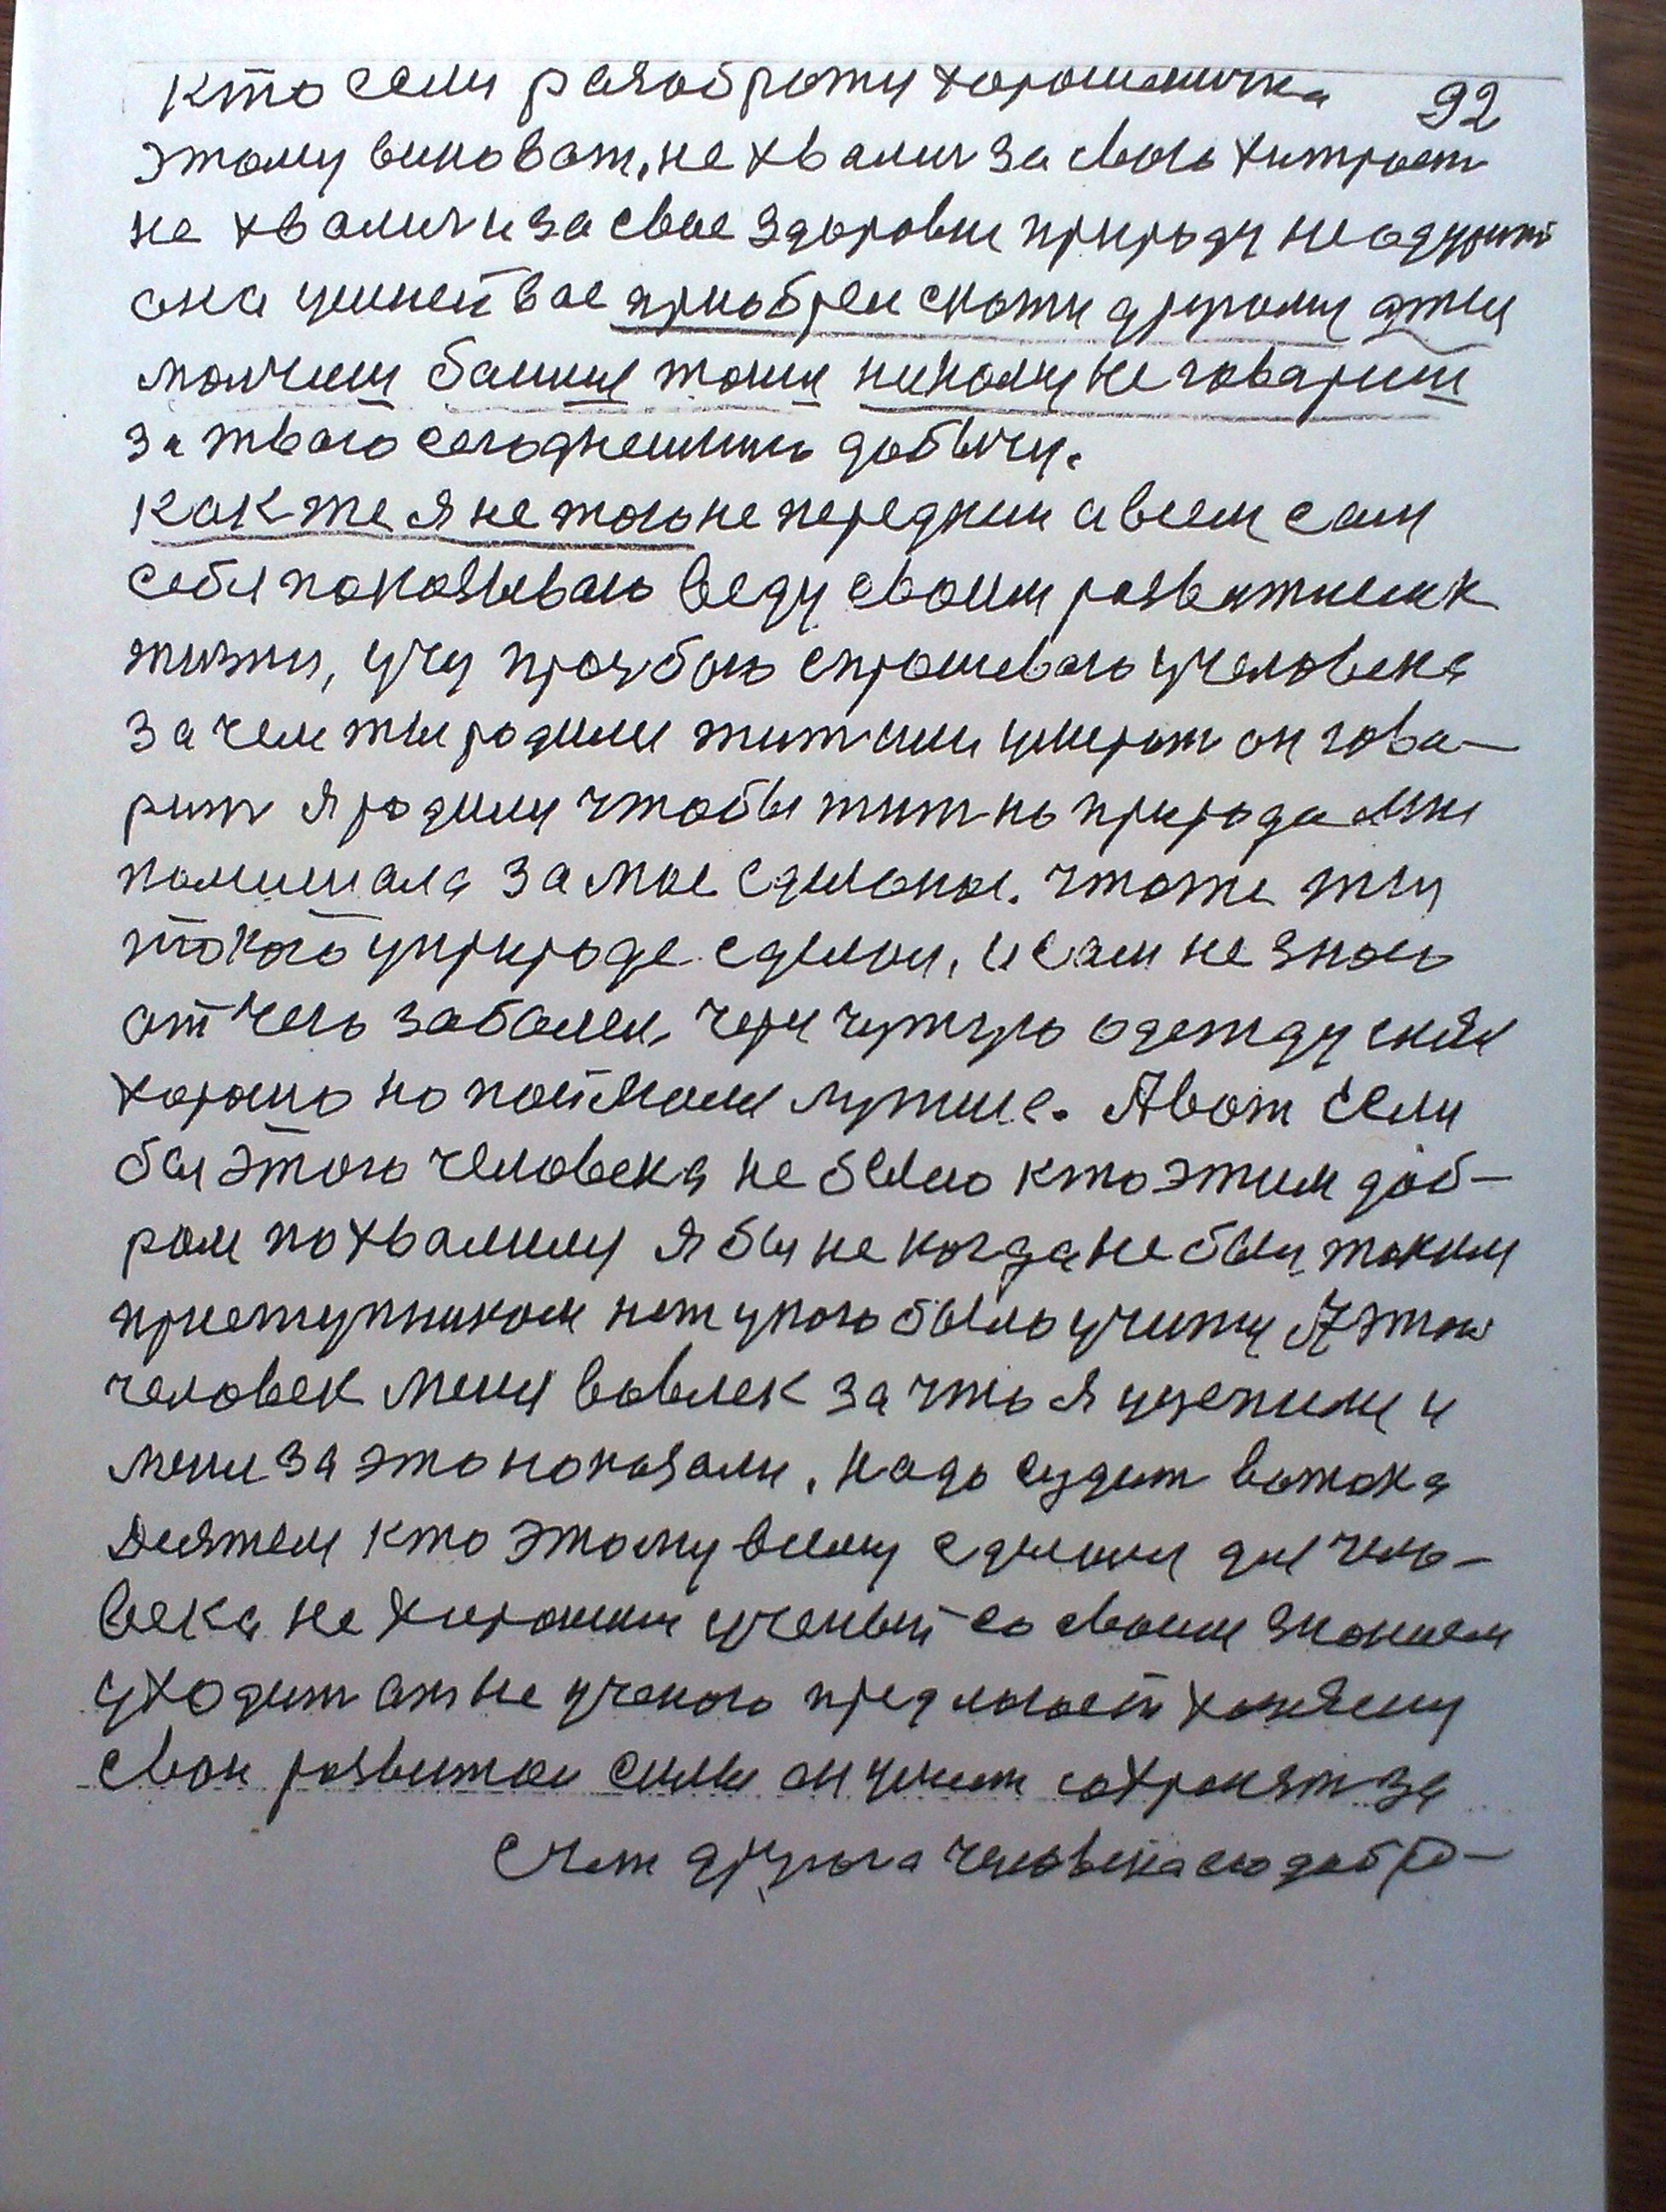 кто если разоброти хорошеничка 92
этому виноват, не хвались за свою хитрост
не хвались и за свое здоровие природу не одурит
она умней вас приобрел скажи другому а ты
молчиш боишся тоиш никому не говариш
за твою сегоднешнию добычу.
Как же я не таюсь не перед ким а всем сам
себя показываю веду своим развитием к
жизни, учу прозбою спрошеваю у человека
зачем ты родилси жит или умират он гова-
рит я родилси чтобы жит но природа мне
помишала за мое сделаное. что же ты
такого у природе сделал, и сам не знаю
от чего заболел, через чужую одежду снял
хорошо но поймали лутше. А вот если
бы этого человека не было кто этим доб-
ром похвалилси я бы не когда не был таким
приступником нет у кого было учитця А этот
человек меня вовлек за что я уцепилси и
меня за это наказали, надо судит витока
деятеля кто этому всему сделал для чело-
века не хороший ученый со своим знанием
уходит от не ученого предлогает хозяену
свои развитои силы он умиит сохранят за
счет другога человека его добро-